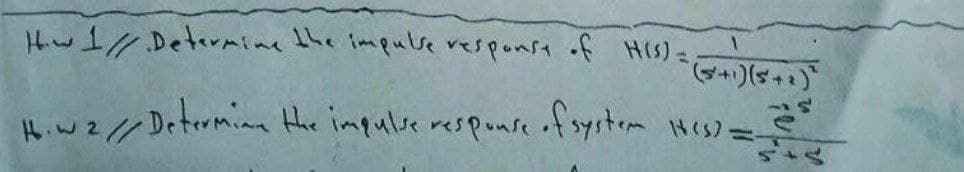 H.w 1// Determine the impulse response of H(s) = 1/((s+1)(s+2)²)
H.w 2// Determine the impulse response of system H(s) = e⁻²ˢ/(s²+s)